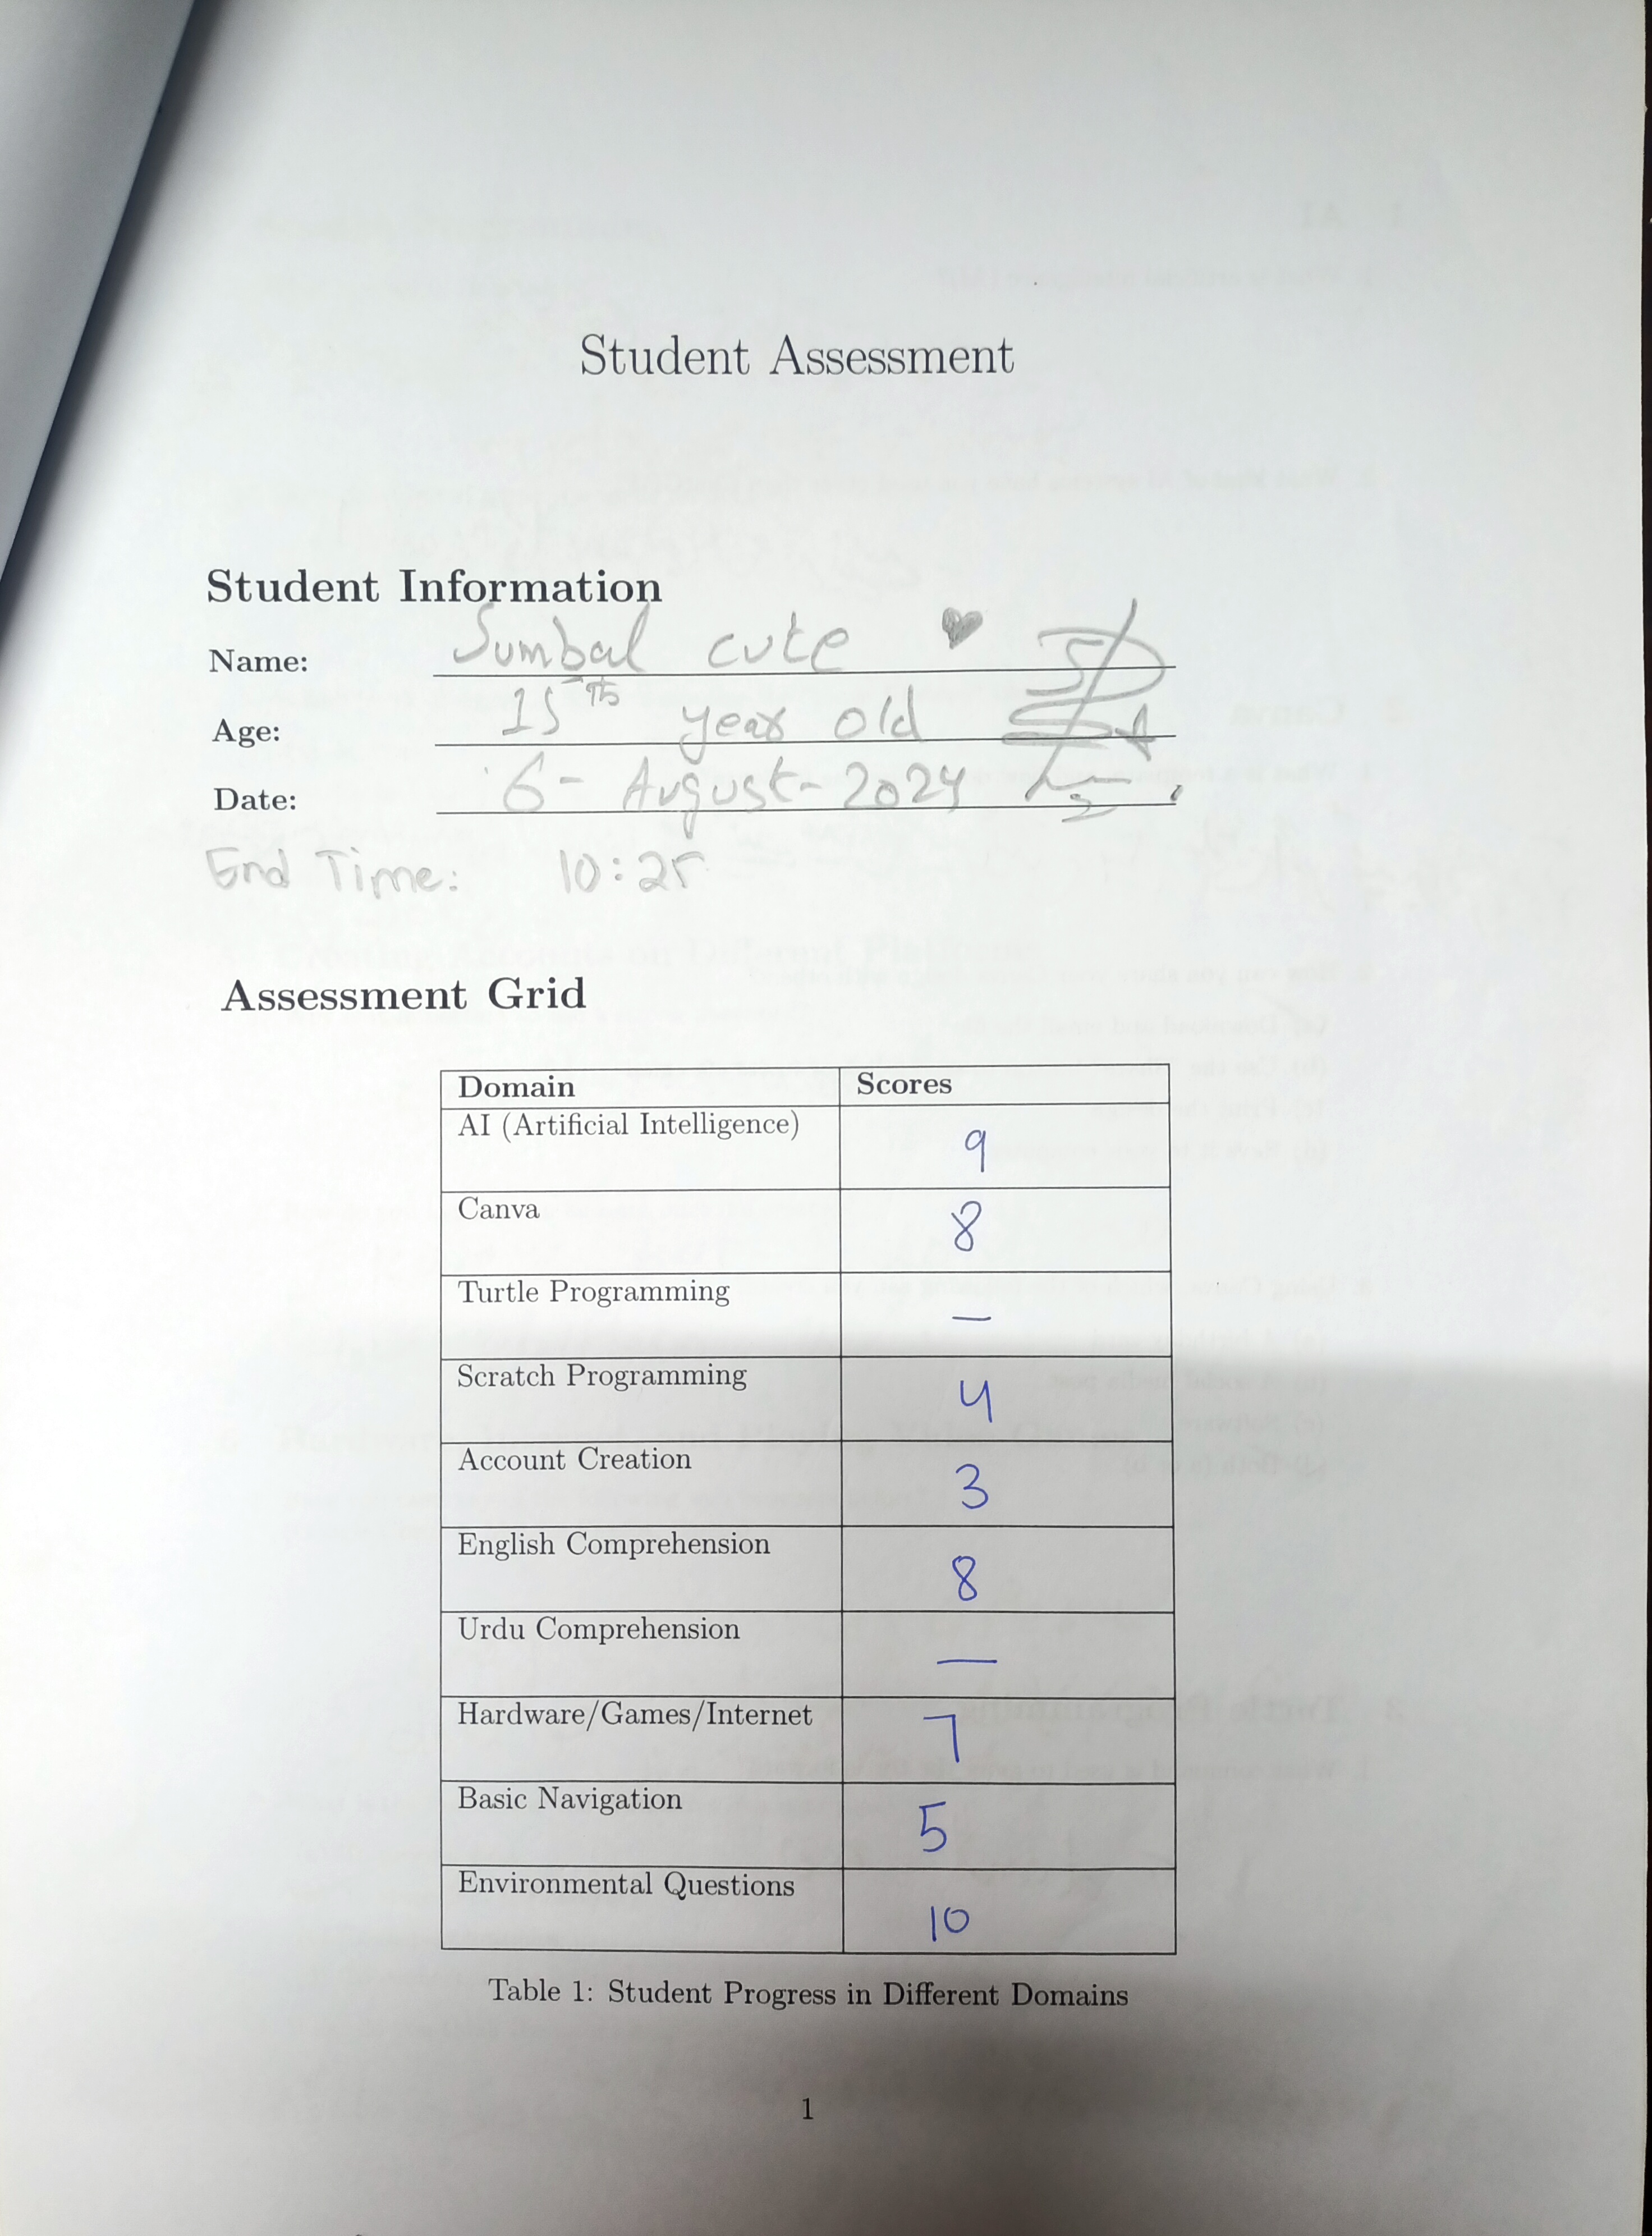 Student Assessment
Student Information
Name: Sumbal cute ♥
Age: 15th year old
Date: 6- August- 2024
End Time: 10:25
Assessment Grid
Domain Scores
AI (Artificial Intelligence) 9
Canva 8
Turtle Programming —
Scratch Programming 4
Account Creation 3
English Comprehension 8
Urdu Comprehension —
Hardware/Games/Internet 7
Basic Navigation 5
Environmental Questions 10
Table 1: Student Progress in Different Domains
1